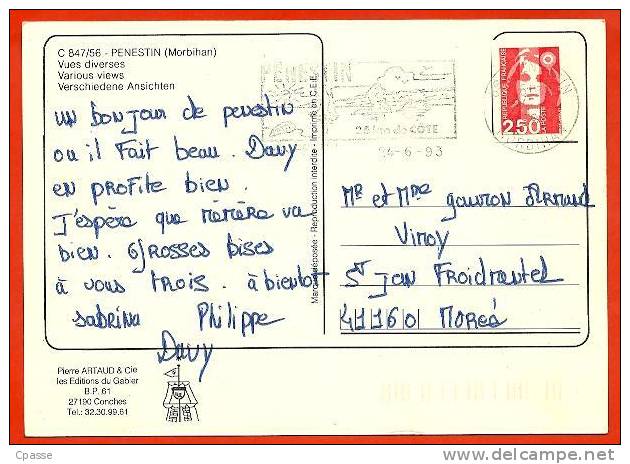 C 847/56 - PENESTIN (Morbihan)
Vues diverses
Various views
Verschiedene Ansichten
un bonjour de penestin
ou il fait beau. Davy
en profite bien.
J'espère que mémère va
bien. Grosses bises
à vous trois. à bientot
sabrina Philippe
Davy
Pierre ARTAUD & Cie
les Editions du Gabier
B.P. 61
27190 Conches
Tel.: 32.30.99.61
Marque déposée - Reproduction interdite - Imprimé en C.E.E.
PENESTIN
25 km de COTE
24-6-93
REPUBLIQUE FRANÇAISE
LA POSTE
2,50
MORBIHAN
Mr et Mme gauron Armand
Viroy
St Jean Froidmentel
41160 Moreé
Cpasse
delcampe.net